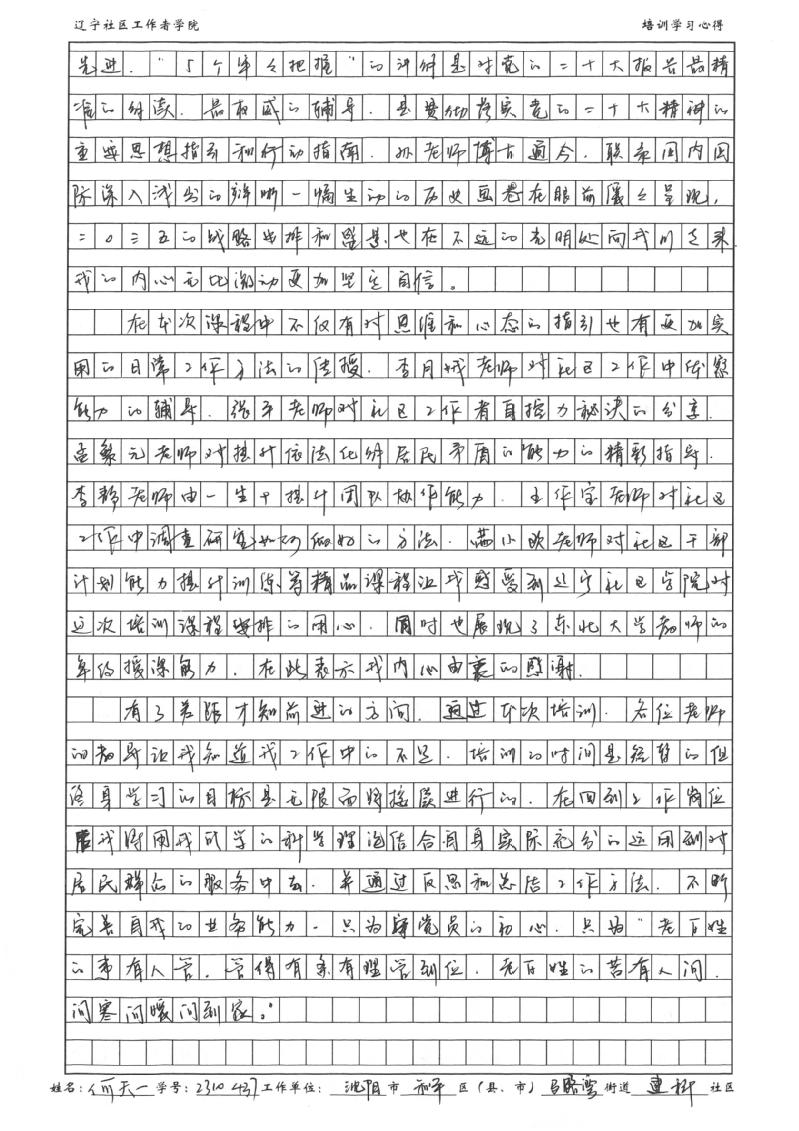 辽宁社区工作者学院 培训学习心得
先进．“5个牢牢把握”的讲解是对党的二十大报告最精
准的解读．最权威的辅导．是贯彻落实党的二十大精神的
重要思想指引和行动指南．孙老师博古通今．联系国内国
际深入浅出的辩晰一幅生动的历史画卷在眼前展展呈现，
二〇三五的战略安排和盛景也在不远的光明处向我们走来．
我的内心无比激动更加坚定自信。
在本次课程中不仅有对思维和心态的指引也有更加实
用的日常工作方法的传授．李月娥老师对社区工作中体察
能力的辅导．张平老师对社区工作者自控力秘决的分享．
孟繁元老师对提升依法化解居民矛盾的能力的精彩指导．
李静老师由一生十提升团队协作能力．王作宝老师对社区
工作中调查研究如何做好的方法．满小欧老师对社区干部
计划能力提升训练等精品课程让我感受到辽宁社区学院对
这次培训课程安排的用心．同时也展现了东北大学教师的
授课能力．在此表示我内心由衷的感谢．
有了差距才知前进的方向．通过本次培训．各位老师
的教导让我知道我工作中的不足．培训的时间是短暂的但
终身学习的目标是无限而将接续进行的．在回到工作岗位
后我将用我所学的科学理论结合自身实际充分的运用到对
居民群众的服务中去．并通过反思和总结工作方法．不断
完善自我的业务能力．只为党员的初心．只为“老百姓
的事有人管．管得有条有理管到位．老百姓的苦有人问．
问寒问暖问到家。”
姓名：何天一 学号：2310437 工作单位：沈阳市 和平区（县、市）马路湾街道 社区